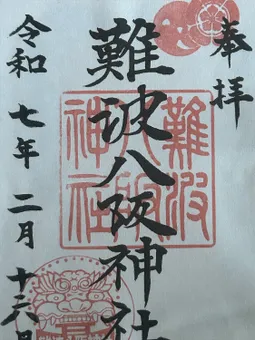 奉拝
難波八阪神社
難波
八阪
神社
令和七年二月十六日